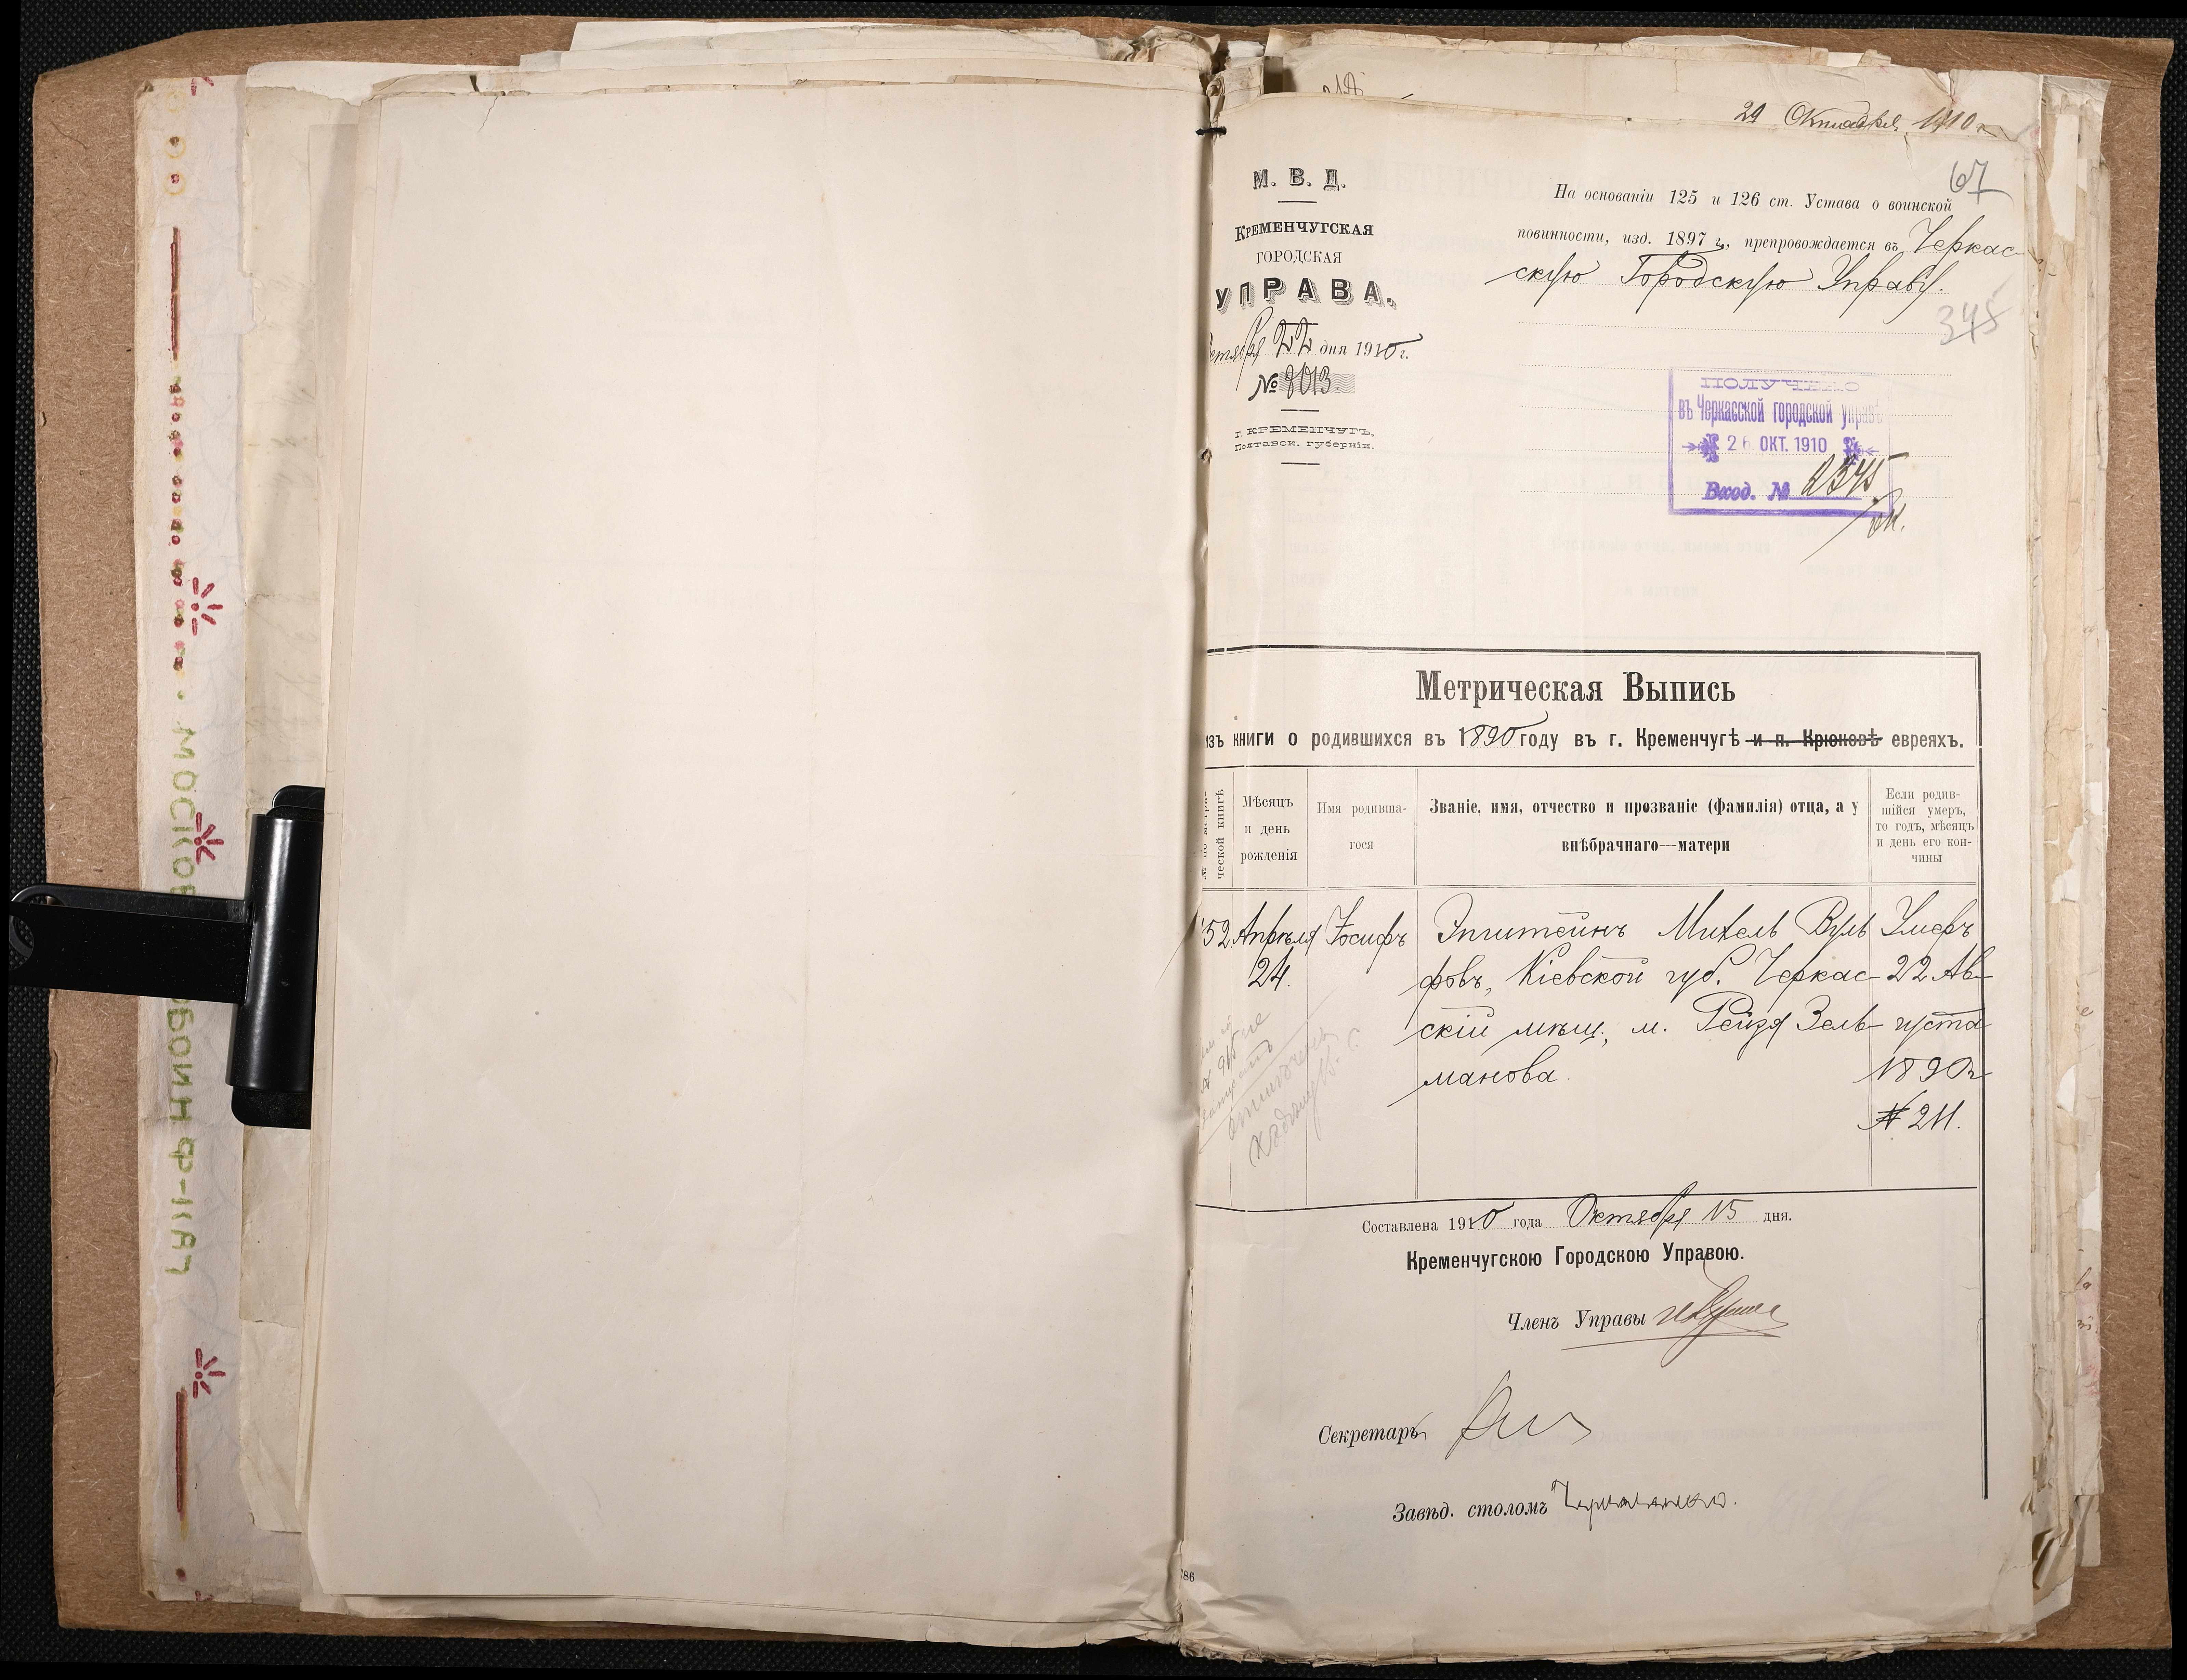 29 Октября 1910 г.
67
М. В. Д.
КРЕМЕНЧУГСКАЯ
ГОРОДСКАЯ
УПРАВА.
Октября 22 дня 1910 г.
№ 8013.
г. КРЕМЕНЧУГЪ,
Полтавск. губерніи.
На основаніи 125 и 126 ст. Устава о воинской
повинности, изд. 1897 г., препровождается въ Черкас-
скую Городскую Управу.
345
ПОЛУЧЕНО
въ Черкасской городской управѣ
26 ОКТ. 1910
Вход. № 2345
Метрическая Выпись
изъ книги о родившихся въ 1890 году въ г. Кременчугѣ и п. Крюковѣ евреяхъ.
№ по метри-
ческой книгѣ
Мѣсяцъ
и день
рожденія
Имя родивша-
гося
Званіе, имя, отчество и прозваніе (фамилія) отца, а у
внѣбрачнаго—матери
Если родив-
шійся умеръ,
то годъ, мѣсяцъ
и день его кон-
чины
152 Апрѣля Іосифъ Эпштейнъ Михель Вуль Умеръ
24. фовъ, Кіевской губ. Черкас- 22 Ав-
скій мѣщ., м. Рейзя Зель- густа
манова. 1890 г
№ 211.
Составлена 1910 года Октября 15 дня.
Кременчугскою Городскою Управою.
Членъ Управы
Секретарь
Завѣд. столомъ
86
МОСКОВ